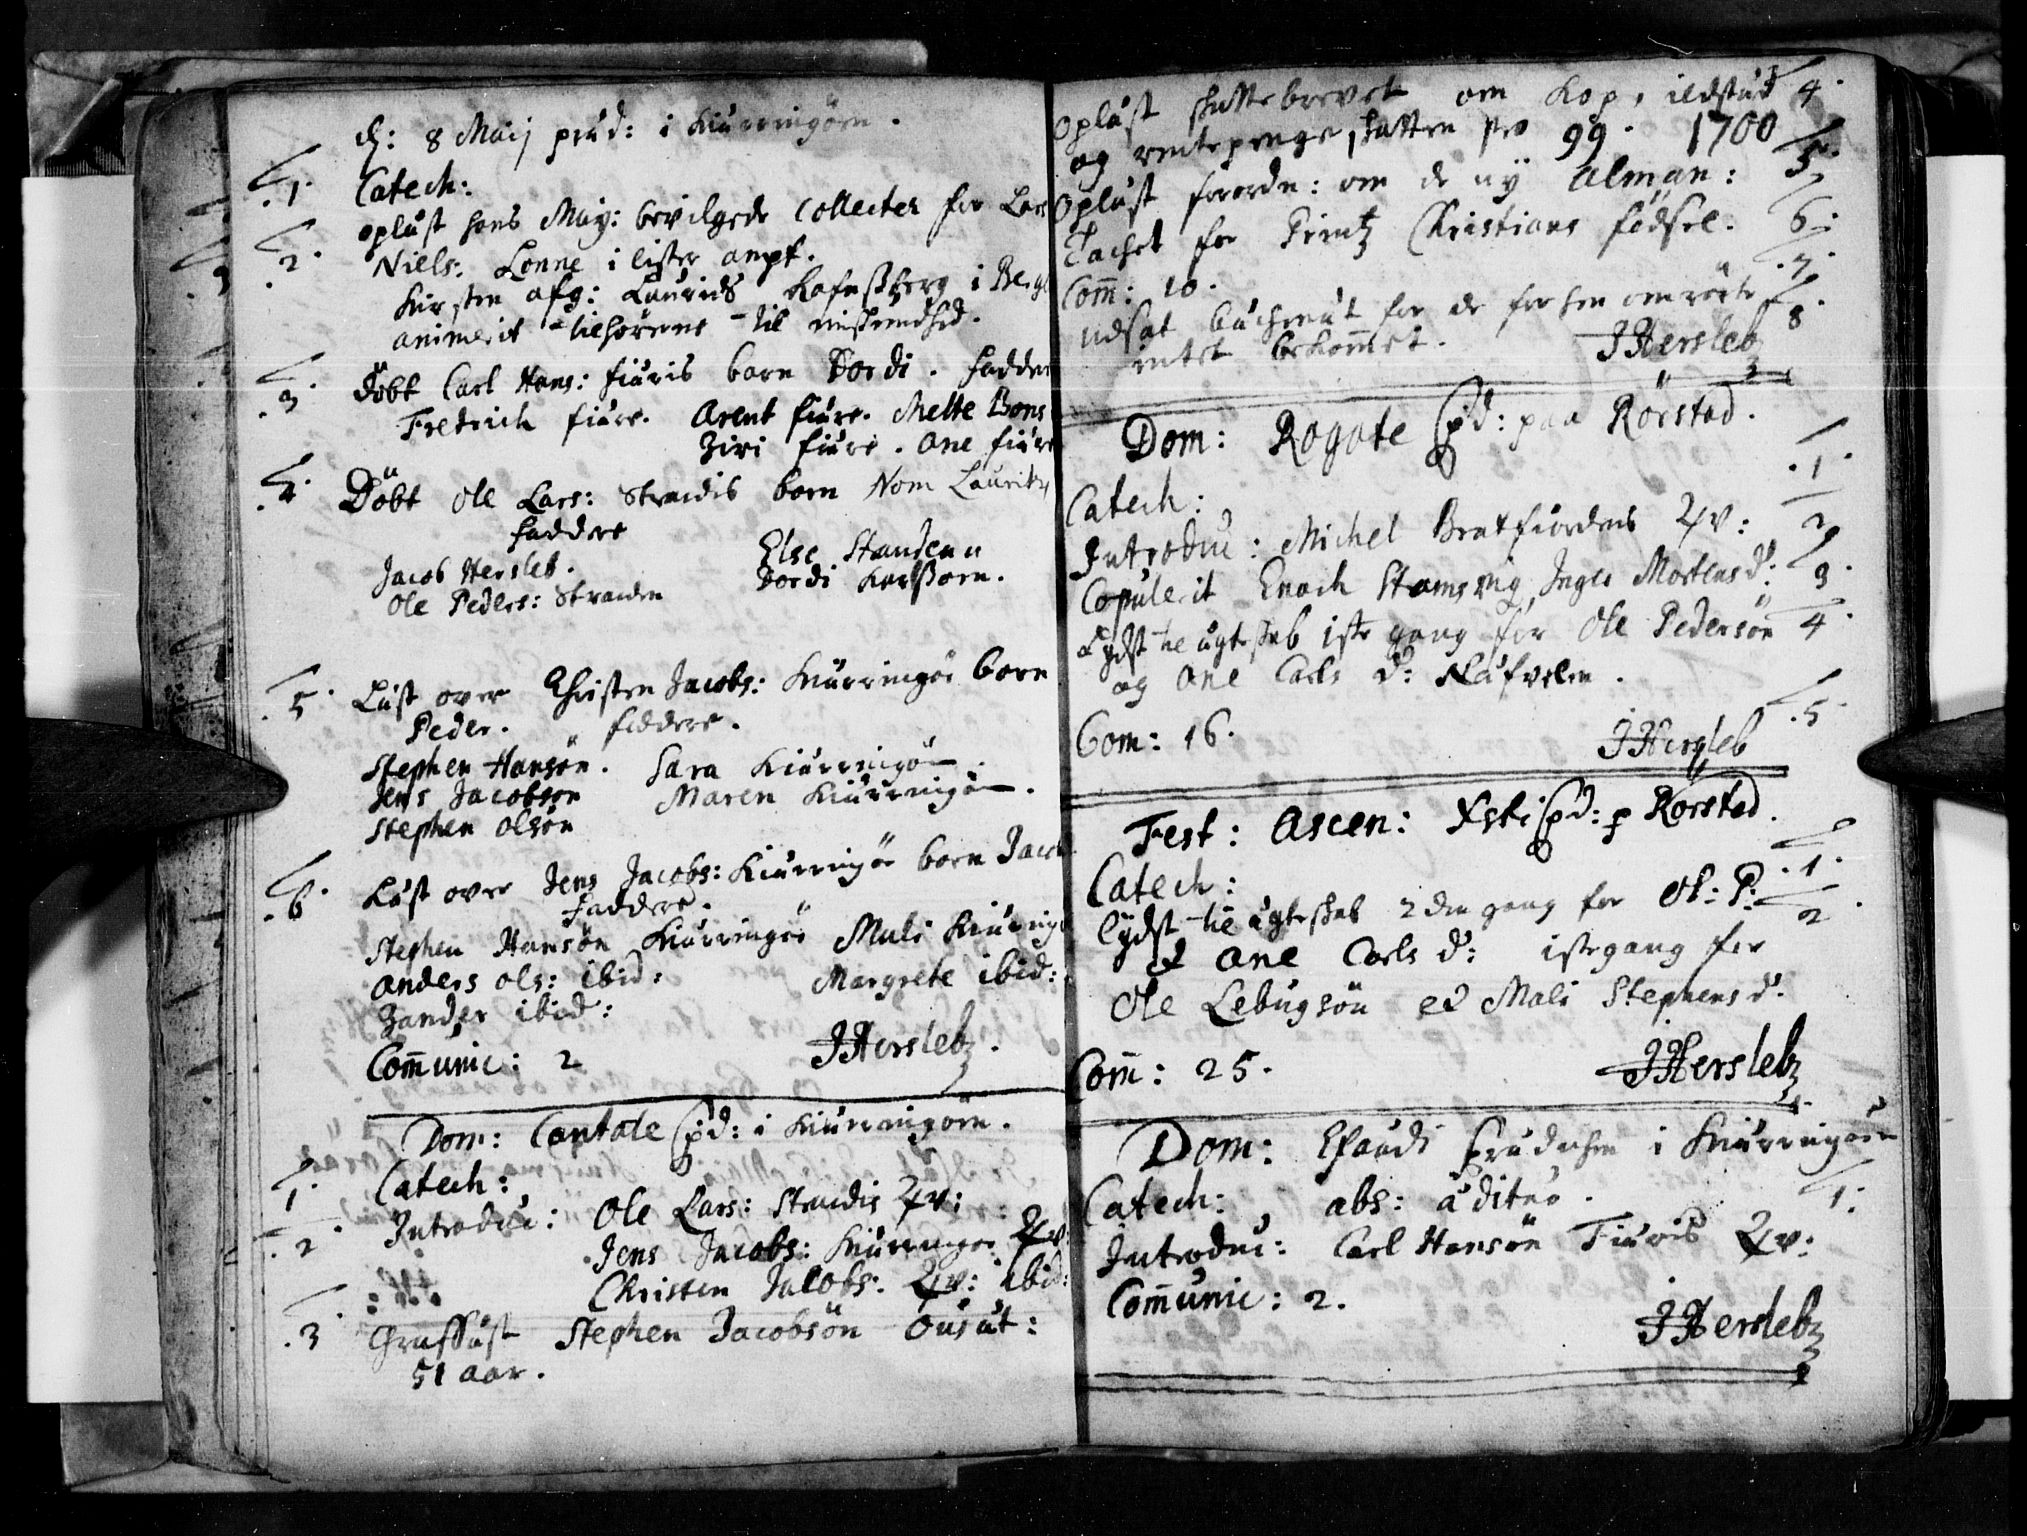 d: 8 Maij præd: i Kiurringöen.
1. Catech:
2. oplæst hans May: bevilgede Collecter for Lars
Niels: Lonne i lister ampt.
Kirsten afg: Laurids i Berg
animerit tilhörerne til
3. döbt Carl Hans: fiuris barn Dordi. fadder
Fredrich fiure. Arent fiure. Mette Bons
Ziri fiure. Ane fiure
4. Döbt Ole Lars: Strandis barn Nom Laurits
faddere
Jacob Hersleb. Else Standen
Ole Peders: Stranden Dordi
5. Læst over Christen Jacobs: Kiurringöe barn
Peder. faddere.
Stephen Hansön. Sara Kiurringön.
Jens Jacobsön Maren Kiurringön.
Stephen olsön
6. Læst over Jens Jacobs: Kiurringöe barn Jacob
faddere.
Stephen Hansön Kiurringöe Mali Kiurringö
Anders ols: ibid: Margrete ibid:
Zander ibid:
Com̄unic: 2 JHersleb.
Dom: Cantate præd: i Kiurringöen.
1. Catech:
2. Introduc: Ole Lars: Strandis qv:
Jens Jacobs: Kiurringöe qv:
Christen Jacobs: qv: ibid:
3. Graffæst Stephen Jacobsön
51 aar.
Oplæst skattebrevet om Kop, ildstæd 4.
og rentepenge skatten pro 99. 1700
Oplæst forordn: om de ny Alman: 5.
Tachet for Printz Christians födsel. 6.
Com̄: 10. 7.
udsat for de for hen omrörte 8.
intet bekom̄et. JHersleb
Dom: Rogate præd: paa Rörstad.
Catech: 1.
Introduc: Michel Bratfiordens qv: 2
Copulerit Enoch Stamsvig Inger Mortensd: 3.
Lydst til ægteskab 1ste gang for Ole Pedersön 4.
og Ane Carls d:
Com: 16. 5.
JHersleb
Fest: Ascen: Xsti præd: p Rörstad.
Catech: 1.
lydst til ægteskab 2den gang for Ol: P: 2
& Ane Carls d: 1ste gang for
Ole Lebugsön et Mali Stephensd.
Com̄: 25. JHersleb
Dom: Exaudi prædichen i Kiurringöen
Catech: abs: ædituo. 1.
Introduc: Carl Hansön Fiuris qv:
Com̄unic: 2.
JHersleb